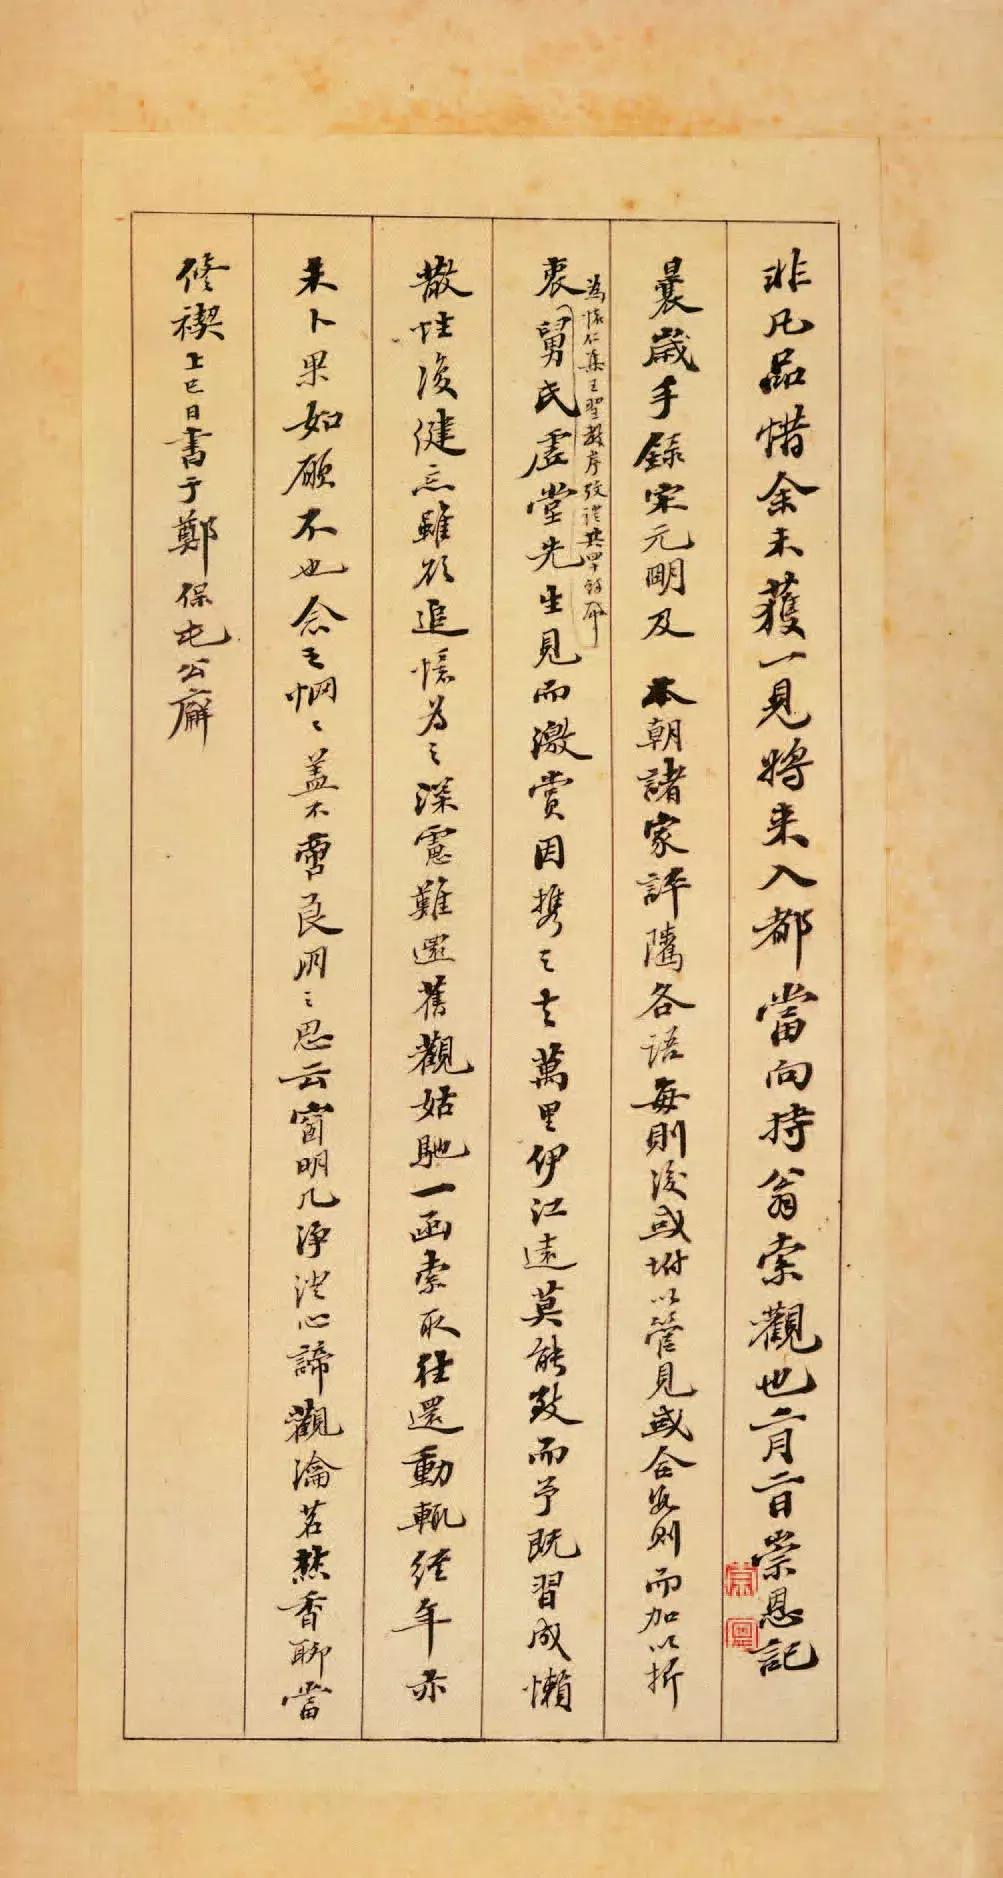 非凡品惜余未獲一見將来入都當向持翁索觀也二月二日崇恩記
曩歲手錄宋元明及 本朝諸家評隲各語每則後或坿以管見或合數則而加以折
衷
為懷仁集王聖教序攷證共四
舅氏虛堂先生見而激賞因携之去萬里伊江遠莫能致而予既習成懶
散性復健忘雖欲追憶為之深慮難還舊觀姑馳一函索取往還動輒經年亦
未卜果如願不也念之惘〻蓋不啻良朋之思云窗明几淨澄心諦觀瀹茗爇香聊當
修禊上巳日書于鄭保屯公廨
崇
恩